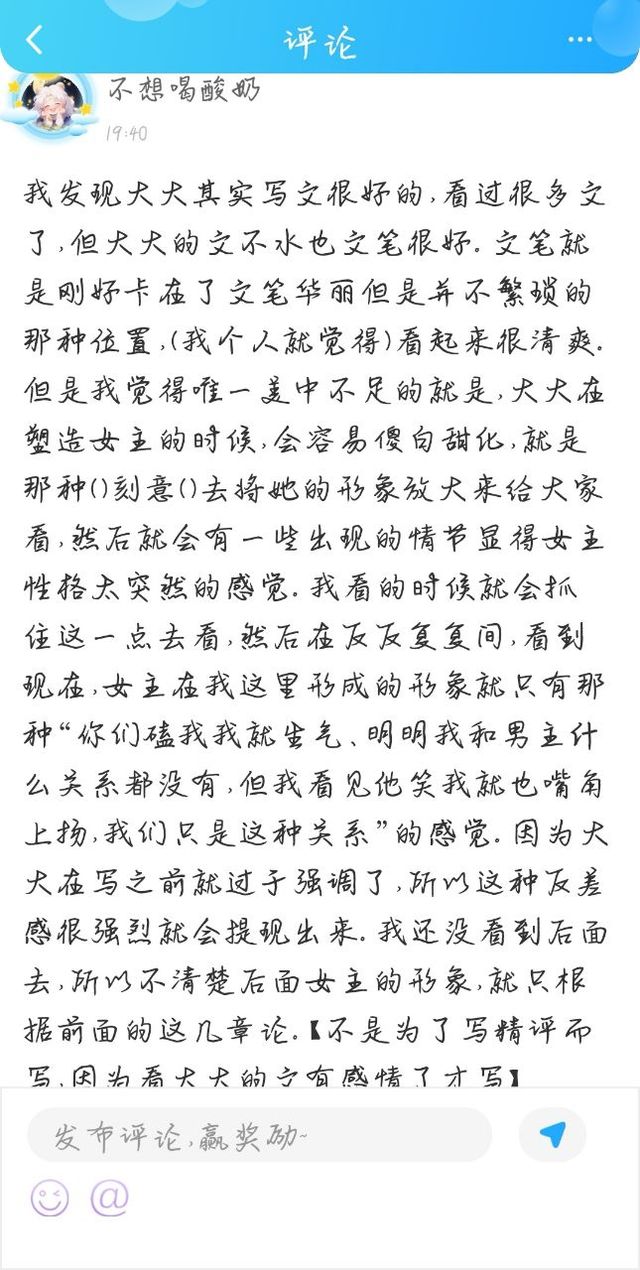 评论
不想喝酸奶
19:40
我发现大大其实写文很好的,看过很多文
了,但大大的文不水也文笔很好。文笔就
是刚好卡在了文笔华丽但是并不繁琐的
那种位置,(我个人就觉得)看起来很清爽.
但是我觉得唯一美中不足的就是,大大在
塑造女主的时候,会容易傻白甜化,就是
那种()刻意()去将她的形象放大来给大家
看,然后就会有一些出现的情节显得女主
性格太突然的感觉.我看的时候就会抓
住这一点去看,然后在反反复复间,看到
现在,女主在我这里形成的形象就只有那
种“你们磕我我就生气、明明我和男主什
么关系都没有,但我看见他笑我就也嘴角
上扬,我们只是这种关系”的感觉.因为大
大在写之前就过于强调了,所以这种反差
感很强烈就会提现出来.我还没看到后面
去,所以不清楚后面女主的形象,就只根
据前面的这几章论.【不是为了写精评而
写,因为看大大的文有感情了才写】
发布评论,赢奖励~